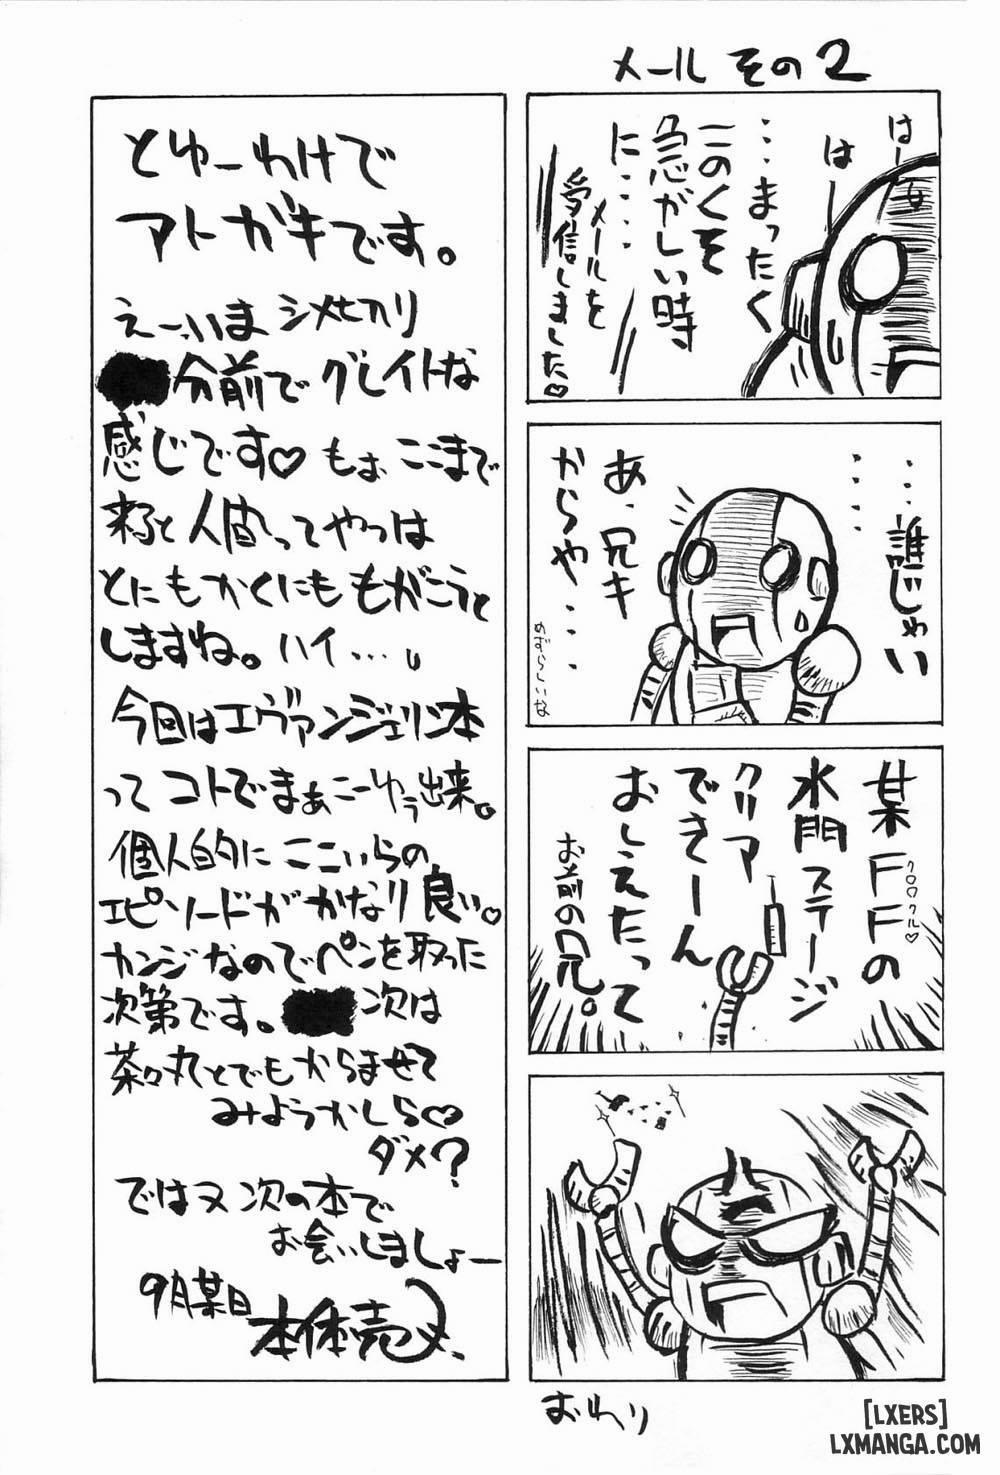 メール その2
はー
はー
…まったく
このくそ
急がしい時
に……
メールを
受信しました♡
……誰じゃい
あ、兄キ
からや…
めずらしいな
某FFの
クロクル♡
水門ステージ
クリア
できーん
おしえたって
お前の兄。
おわり
とゆーわけで
アトガキです。
えーいま シメセツリ
分前で グレイトな
感じです♡ もぉ ここまで
来ると 人間ってやつは
とにもかくにも もがこうと
しますね。ハイ…。
今回はエヴァンジェリン本
って コトでまぁこーゆぅ出来。
個人的に ここいらの
エピソードが かなり良い。
カンジなのでペンを取った
次第です。 次は
茶々丸とでもからませて
みようかしら♡
ダメ?
ではヌ 次の本で
お会いしましょー
9月某日
本体売
[LXERS]
LXMANGA.COM